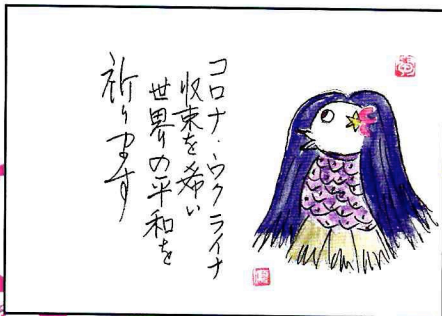 コロナ・ウクライナ
収束を希い
世界の平和を
祈ります